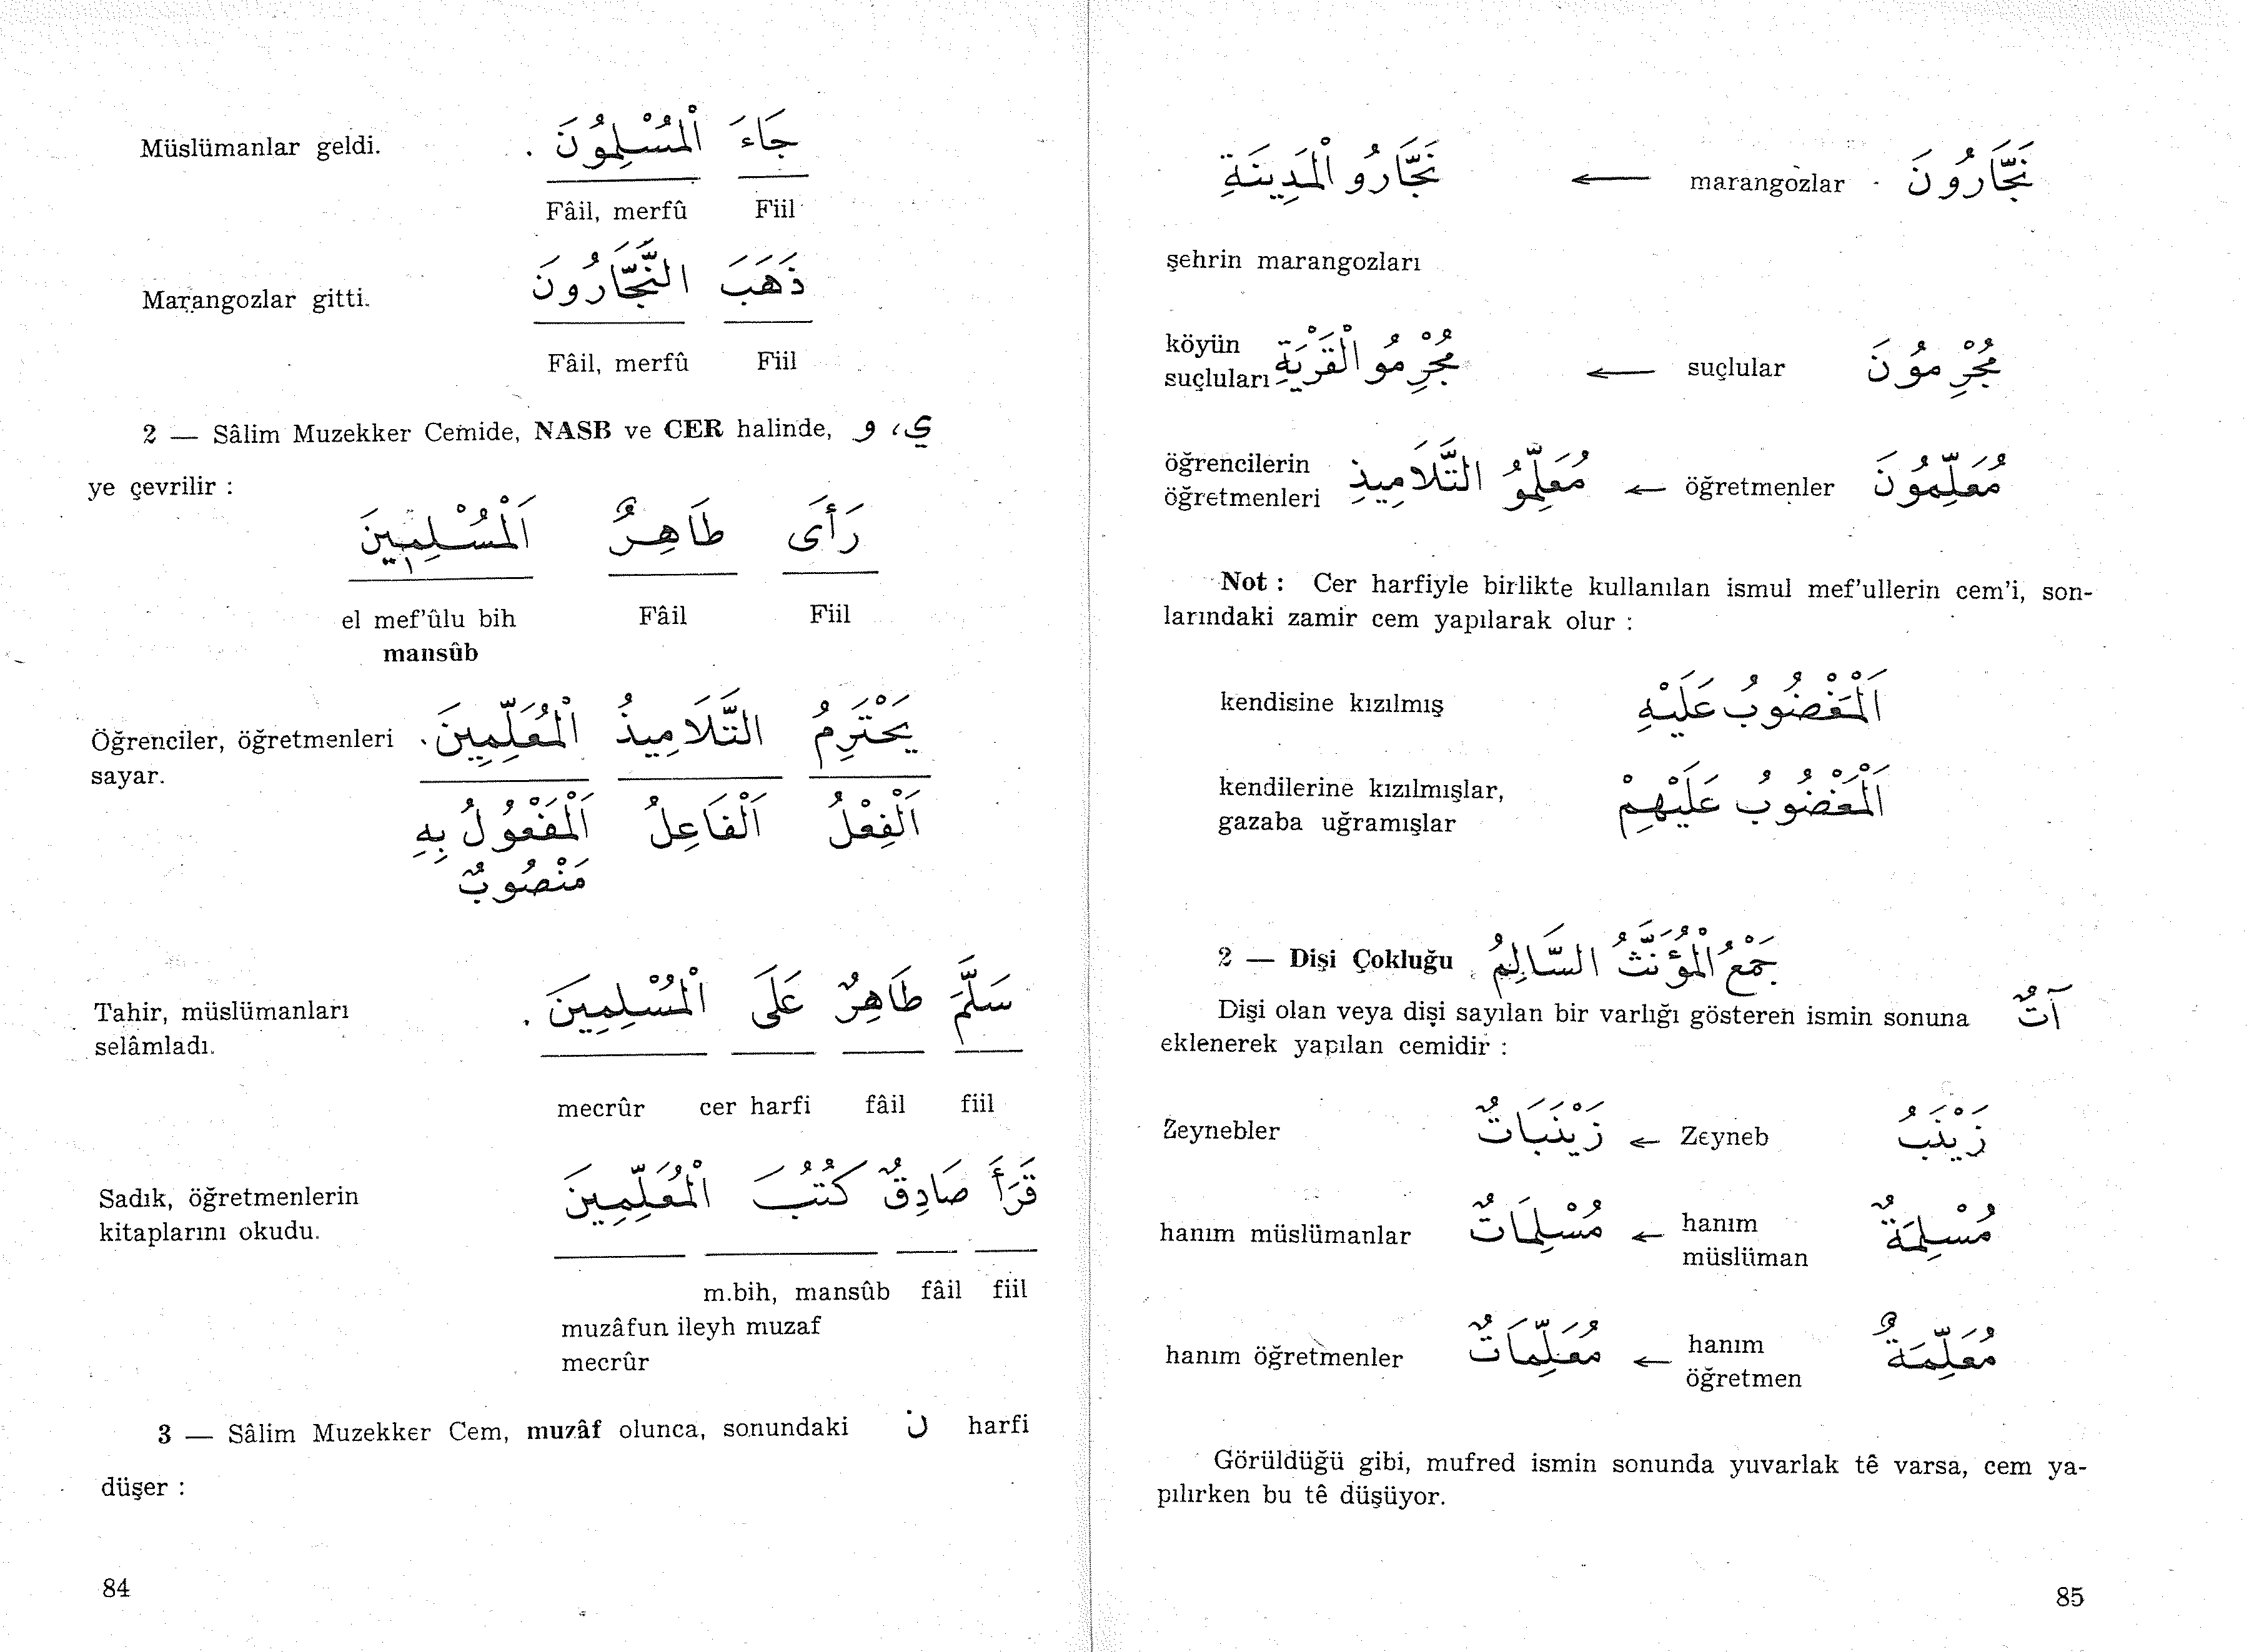 Müslümanlar geldi. جَاءَ الْمُسْلِمُونَ .
Fâil, merfû Fiil
Marangozlar gitti. ذَهَبَ النَّجَّارُونَ
Fâil, merfû Fiil
2 — Sâlim Muzekker Cemide, NASB ve CER halinde, و ، ي
ye çevrilir :
رَأَى طَاهِرٌ اَلْمُسْلِمِينَ
el mef'ûlu bih Fâil Fiil
mansûb
Öğrenciler, öğretmenleri يَحْتَرِمُ التَّلَامِيذُ الْمُعَلِّمِينَ .
sayar.
اَلْفِعْلُ اَلْفَاعِلُ اَلْمَفْعُولُ بِهِ
مَنْصُوبٌ
Tahir, müslümanları سَلَّمَ طَاهِرٌ عَلَى الْمُسْلِمِينَ .
selâmladı.
mecrûr cer harfi fâil fiil
Sadık, öğretmenlerin قَرَأَ صَادِقٌ كُتُبَ الْمُعَلِّمِينَ
kitaplarını okudu.
m.bih, mansûb fâil fiil
muzâfun ileyh muzaf
mecrûr
3 — Sâlim Muzekker Cem, muzâf olunca, sonundaki ن harfi
düşer :
84
نَجَّارُونَ marangozlar ← نَجَّارُو الْمَدِينَةِ
şehrin marangozları
مُجْرِمُونَ suçlular ← مُجْرِمُو الْقَرْيَةِ köyün
suçluları
مُعَلِّمُونَ öğretmenler ← مُعَلِّمُو التَّلَامِيذِ öğrencilerin
öğretmenleri
Not : Cer harfiyle birlikte kullanılan ismul mef'ullerin cem'i, son-
larındaki zamir cem yapılarak olur :
kendisine kızılmış اَلْمَغْضُوبُ عَلَيْهِ
kendilerine kızılmışlar, اَلْمَغْضُوبُ عَلَيْهِمْ
gazaba uğramışlar
2 — Dişi Çokluğu جَمْعُ الْمُؤَنَّثُ السَّالِمُ
Dişi olan veya dişi sayılan bir varlığı gösteren ismin sonuna آتٌ
eklenerek yapılan cemidir :
Zeynebler زَيْنَبَاتٌ ← Zeyneb زَيْنَبُ
hanım müslümanlar مُسْلِمَاتٌ ← hanım مُسْلِمَةٌ
müslüman
hanım öğretmenler مُعَلِّمَاتٌ ← hanım مُعَلِّمَةٌ
öğretmen
Görüldüğü gibi, mufred ismin sonunda yuvarlak tê varsa, cem ya-
pılırken bu tê düşüyor.
85